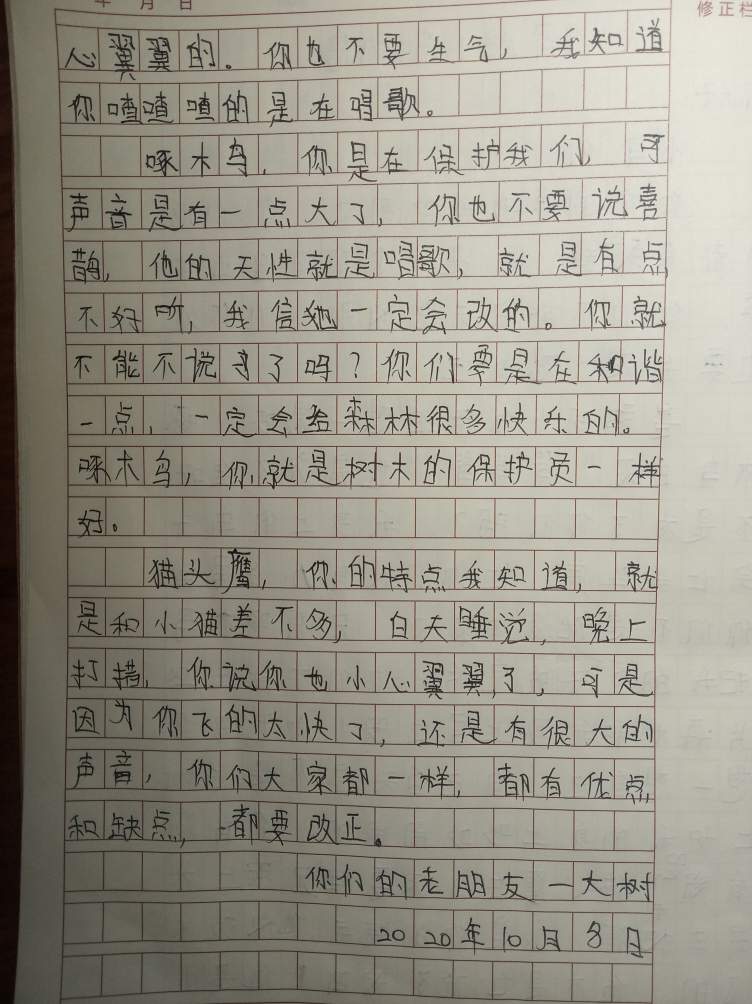 年 月 日
修正栏
心翼翼的。你也不要生气，我知道
你喳喳喳的是在唱歌。
啄木鸟，你是在保护我们，可
声音是有一点大了，你也不要说喜
鹊，他的天性就是唱歌，就是有点
不好听，我信她一定会改的。你就
不能不说了吗？你们要是在和谐
一点，一定会给森林很多快乐的。
啄木鸟，你就是树木的保护员一样
好。
猫头鹰，你的特点我知道，就
是和小猫差不多，白天睡觉，晚上
打措，你说你也小心翼翼了，可是
因为你飞的太快了，还是有很大的
声音，你们大家都一样，都有优点
和缺点，都要改正。
你们的老朋友一大树
2020年10月8日